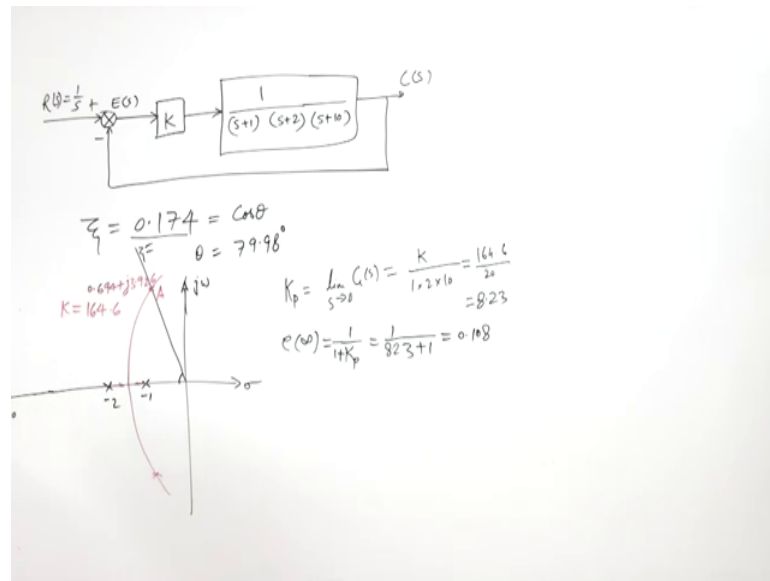 C(S)
R(S)=1/S + E(S)
K
1
(S+1) (S+2) (S+10)
-
ξ = 0.174 = Cosθ
θ = 79.98°
ξ=
0.694+j3.926
A
jω
K=164.6
Kp = lim S→0 G(S) = K / 1×2×10 = 164.6 / 20
=8.23
e(∞) = 1 / 1+Kp = 1 / 8.23+1 = 0.108
-2 -1 σ